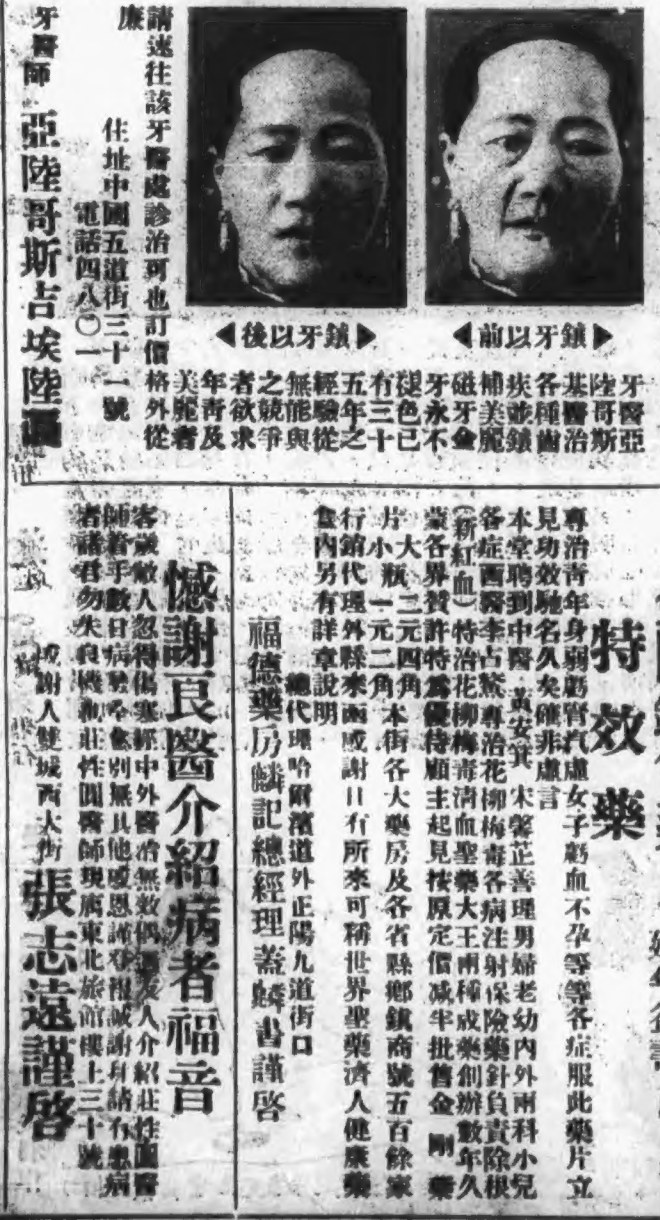 ▶鑲牙以前◀
▶鑲牙以後◀
牙醫亞
陸哥斯
基醫治
各種齒
疾並鑲
補美麗
磁牙金
牙永不
褪色已
有三十
五年之
經驗從
無能與
之競爭
者欲求
年青及
美麗者
請速往該牙醫處診治可也訂價格外從
廉
住址中國五道街三十一號
電話四八〇一
牙醫師 亞陸哥斯吉埃陸
特效藥
專治青年身弱虧腎氣虛女子虧血不孕等等各症服此藥片立
見功效馳名久矣確非虛言
本堂聘到中醫 黃安箕 宋馨芷善理男婦老幼內外兩科小兒
各症西醫李占鰲專治花柳梅毒各病注射保險藥針負責除根
(新紅血)特治花柳梅毒清血聖藥大王兩種成藥創辦數年久
蒙各界贊許特爲優待顧主起見按原定價减半批舊金 剛 藥
片 大瓶 二元四角
小瓶 一元二角 本街各大藥房及各省縣鄉鎮商號五百餘家
行銷代理外縣來函感謝日有所來可稱世界聖藥濟人健康藥
隻內另有詳章說明
總代理哈爾濱道外正陽九道街口
福德藥房麟記總經理蓋麟書謹啓
憾謝良醫介紹病者福音
客歲敝人忽得傷寒經中外醫治無效偶遇友人介紹莊性圃醫
師着手數日病勢全愈別無其他噯恩謹登報誠謝并請有患病
者諸君勿失良機莊性圃醫師現寓東北旅館樓上三十號
感謝人雙城西大街 張志遠謹啓